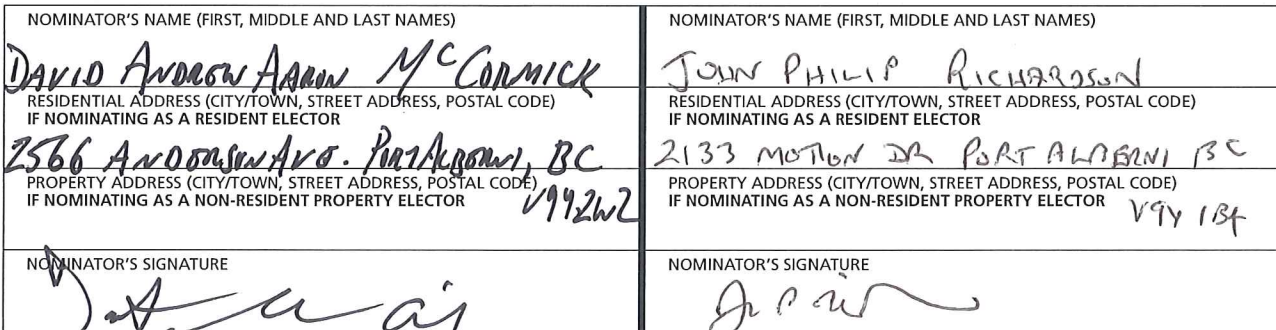 NOMINATOR'S NAME (FIRST, MIDDLE AND LAST NAMES)
DAVID ANDREW AARON McCORMICK
RESIDENTIAL ADDRESS (CITY/TOWN, STREET ADDRESS, POSTAL CODE)
IF NOMINATING AS A RESIDENT ELECTOR
2566 ANDERSON AVE. PORT ALBERNI, BC
PROPERTY ADDRESS (CITY/TOWN, STREET ADDRESS, POSTAL CODE)
IF NOMINATING AS A NON-RESIDENT PROPERTY ELECTOR
V9Y2W2
NOMINATOR'S SIGNATURE
NOMINATOR'S NAME (FIRST, MIDDLE AND LAST NAMES)
JOHN PHILIP RICHARDSON
RESIDENTIAL ADDRESS (CITY/TOWN, STREET ADDRESS, POSTAL CODE)
IF NOMINATING AS A RESIDENT ELECTOR
2133 MOTION DR PORT ALBERNI BC
PROPERTY ADDRESS (CITY/TOWN, STREET ADDRESS, POSTAL CODE)
IF NOMINATING AS A NON-RESIDENT PROPERTY ELECTOR
V9Y
NOMINATOR'S SIGNATURE